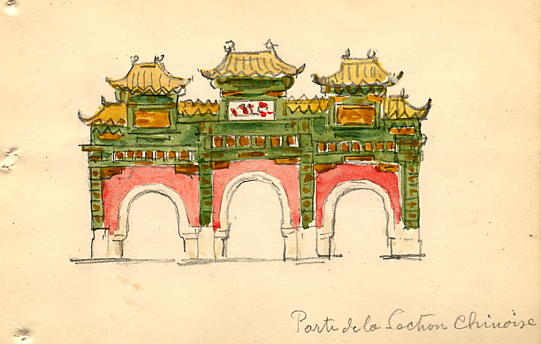 Porte de la Section Chinoise